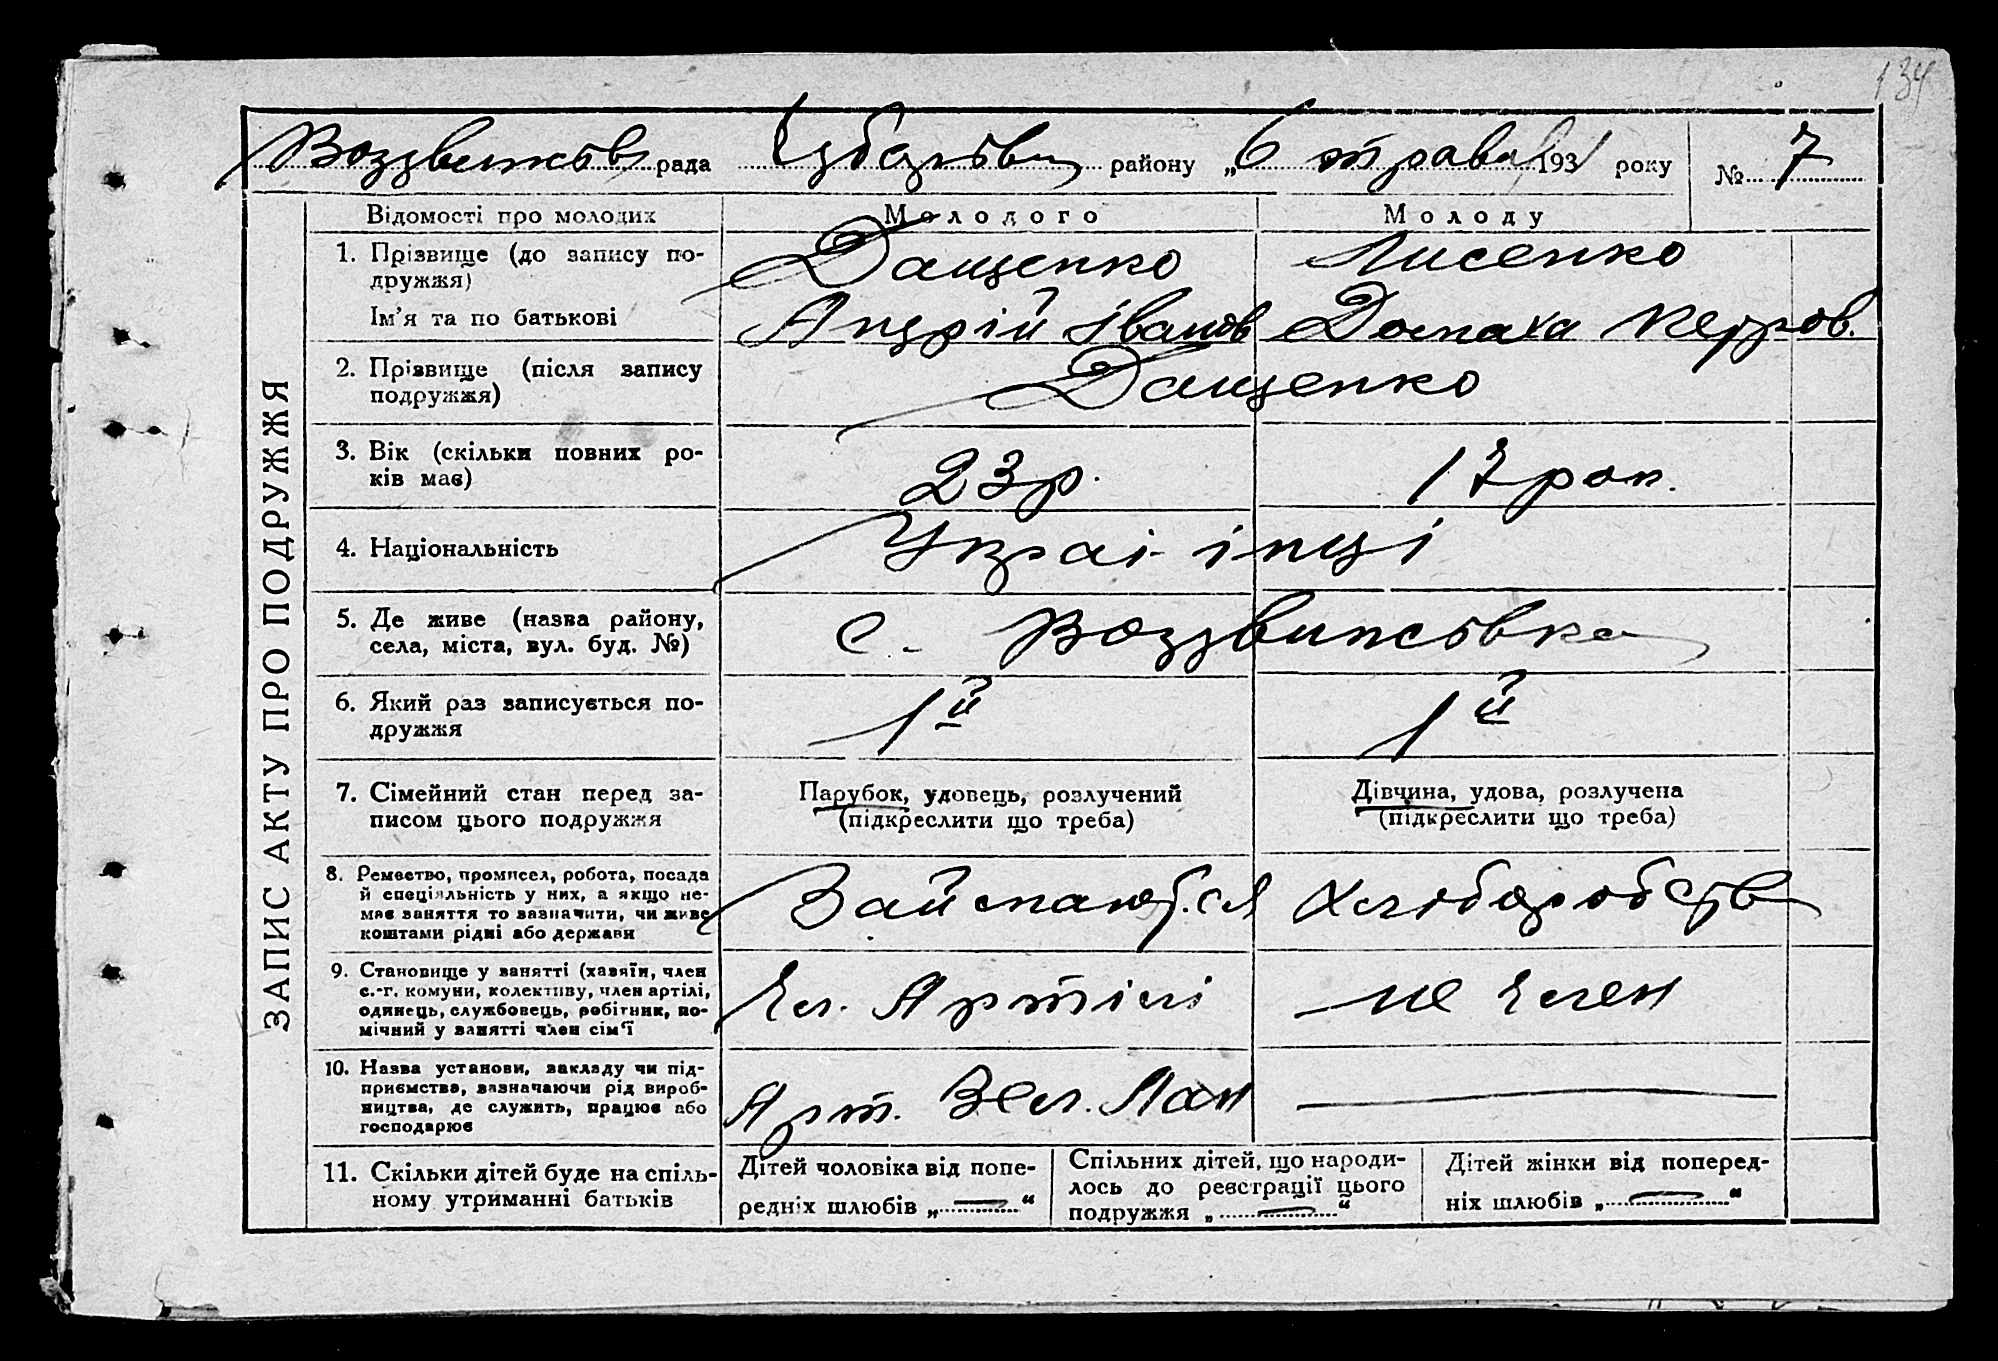 134
Воздвижов рада району „6 травня 1931 року № 7
ЗАПИС АКТУ ПРО ПОДРУЖЖЯ
Відомості про молодих Молодого Молоду
1. Прізвище (до запису по-
дружжя)
Дащенко Лисенко
Ім’я та по батькові Андрій Іванов Домаха Петров.
2. Прізвище (після запису
подружжя)
Дащенко
3. Вік (скільки повних ро-
ків має)
23 р. 17 рок.
4. Національність Украі-інці
5. Де живе (назва району,
села, міста, вул. буд. №)
с. Воздвижовка
6. Який раз записується по-
дружжя
1й 1й
7. Сімейний стан перед за-
писом цього подружжя
Парубок, удовець, розлучений
(підкреслити що треба)
Дівчина, удова, розлучена
(підкреслити що треба)
8. Ремество, промисел, робота, посада
й спеціяльність у них, а якщо не-
має заняття то зазначити, чи живе
коштами рідні або держави
Займают.ся Хліборобств
9. Становище у занятті (хазяїн, член
с.-г. комуни, колективу, член артілі,
одинець, службовець, робітник, по-
мічний у занятті член сім’ї
Чл. Артілі не член
10. Назва установи, закладу чи під-
приємства, зазначаючи рід вироб-
ництва, де служить, працює або
господарює
Арт. Зел. Лан —
11. Скільки дітей буде на спіль-
ному утриманні батьків
Дітей чоловіка від попе-
редніх шлюбів „—“
Спільних дітей, що народи-
лось до реєстрації цього
подружжя „—“
Дітей жінки від поперед-
ніх шлюбів „—“